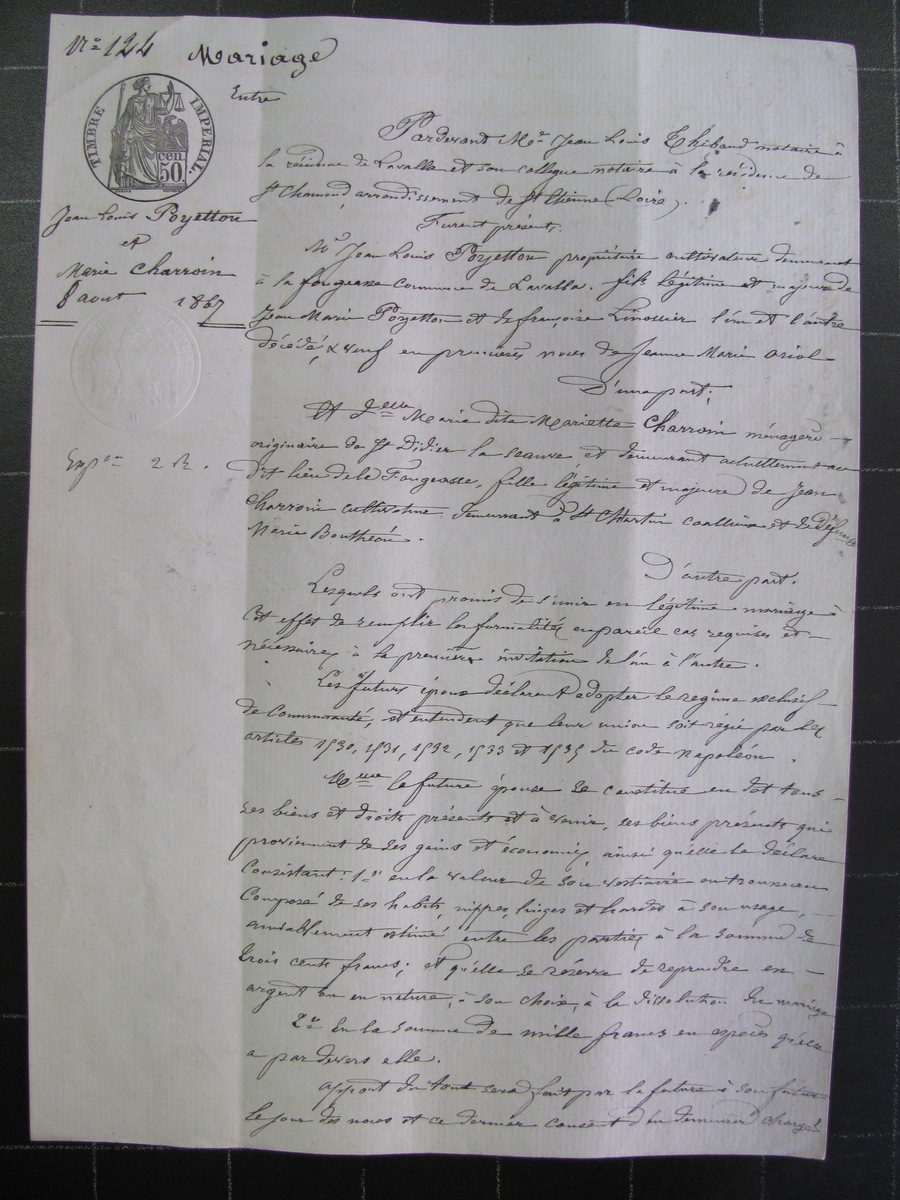 No 124
Mariage
Entre
TIMBRE IMPERIAL
cen. 50
Jean Louis Poyetton
et
Marie Charroin
8 aout 1867
Expon 2 R.
Pardevant Me Jean Louis Thibaud notaire à
la résidence de Lavalla et son collègue notaire à la résidence de
St Chamond, arrondissement de St Etienne (Loire).
Furent présents.
Mr Jean Louis Poyetton propriétaire cultivateur demeurant
à la fougeasse commune de Lavalla. fils légitime et majeur de
Jean Marie Poyetton et de françoise Linossier l'un et l'autre
décédés, & veuf en premières noces de Jeanne Marie Oriol
D'une part;
Et Delle Marie dite Mariette Charroin ménagère
originaire de St Didier la Seauve et demeurant actuellement au
dit lieu de la Fougeasse, fille légitime et majeure de Jean
Charroin cultivateur demeurant à St Martin coalieux et de défunte
Marie Bouthéon.
D'autre part.
Lesquels ont promis de s'unir en légitime mariage à
cet effet de remplir les formalités en pareil cas requises et
nécessaires à la première invitation de l'un à l'autre.
Les futurs époux déclarent adopter le régime exclusif
de Communauté, et entendent que leur union soit régie par les
articles 1530, 1531, 1532, 1533 et 1535 du code napoléon.
Melle la future épouse se constitue en dot tous
ses biens et droits présents et à venir, ses biens présents qui
proviennent de ses gains et économies, ainsi qu'elle le déclare
Consistant: 1o en la valeur de son vestiaire ou trousseau
Composé de ses habits, nippes, linges et hardes à son usage,
amiablement estimé entre les parties à la somme de
trois cents francs; et qu'elle se réserve de reprendre en
argent ou en nature, à son choix, à la dissolution du mariage
2o En la somme de mille francs en espèces qu'elle
a par devers elle.
apport du tout sera fait par la future à son futur
le jour des noces et ce dernier consent d'en demeurer chargé